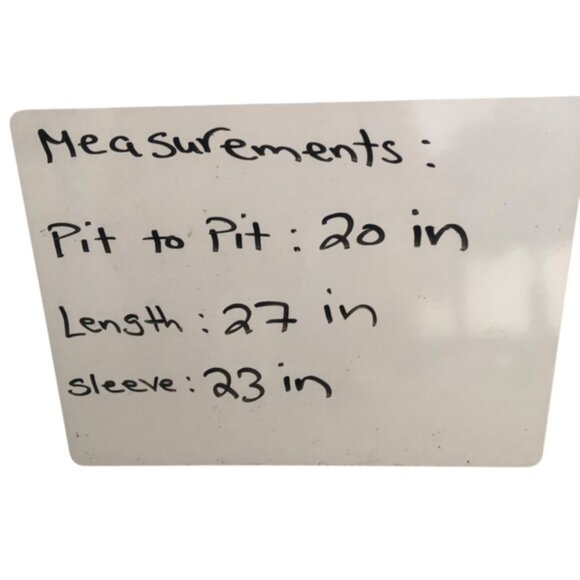 Measurements:
Pit to Pit: 20 in
Length: 27 in
sleeve: 23 in